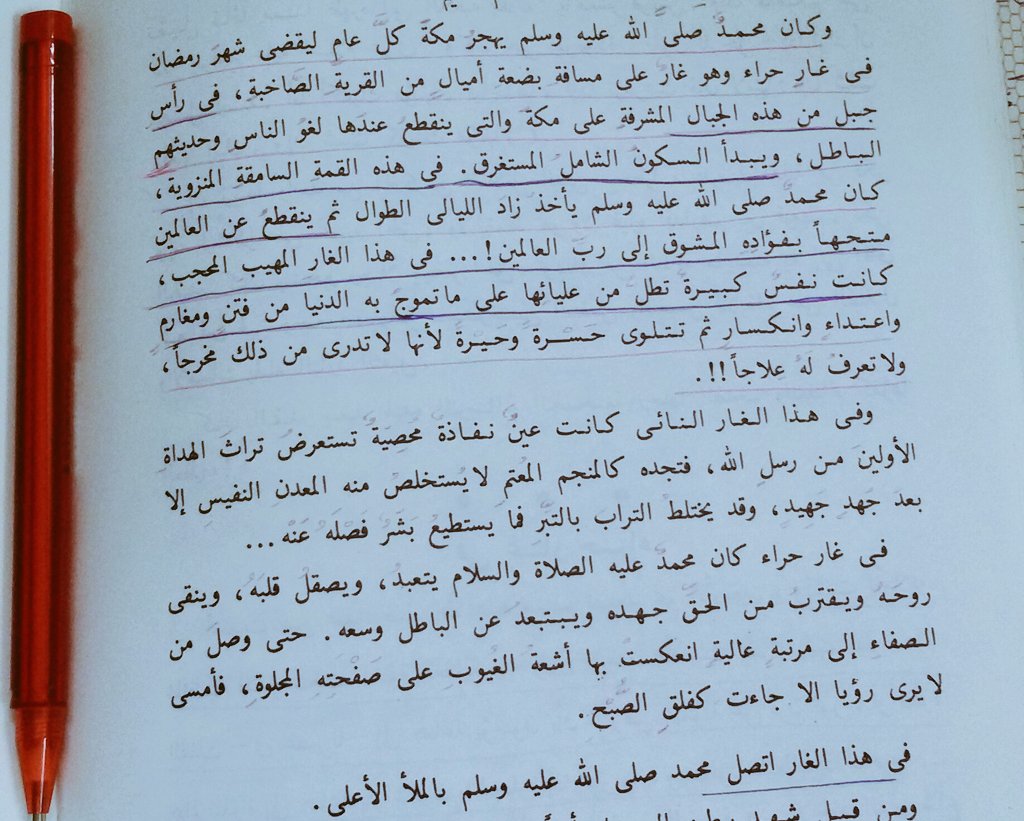 وكان محمدٌ صلى الله عليه وسلم يهجر مكةَ كلَّ عامٍ ليقضى شهرَ رمضان
فى غارِ حراء وهو غارٌ على مسافة بضعة أميالٍ من القرية الصَّاخبة، فى رأس
جبلٍ من هذه الجبال المشرفةِ على مكةَ والتى ينقطعُ عندها لغوُ الناس وحديثهم
الباطل، ويبدأ السكونُ الشاملُ المستغرق. فى هذه القمة السامقة المنزوية،
كان محمدٌ صلى الله عليه وسلم يأخذ زاد الليالى الطوال ثم ينقطعُ عن العالمين
متجهاً بفؤادِه المشوق إلى ربِّ العالمين!... فى هذا الغار المهيب المحجب،
كانت نفسٌ كبيرةٌ تطلُّ من عليائها على ماتموجُ به الدنيا من فتنٍ ومغارمَ
واعتداءٍ وانكسار ثم تتلوى حَسْرةً وحَيْرةً لأنها لاتدرى من ذلك مخرجاً،
ولاتعرفُ لهُ عِلاجاً!!.
وفى هذا الغار النائى كانت عينٌ نفاذةٌ محصِيةٌ تستعرضُ تراثَ الهداة
الأولينَ من رسلِ الله، فتجده كالمنجم المُعتم لايُستخلصُ منه المعدن النفيسِ إلا
بعد جهدٍ جهيد، وقد يختلطُ التراب بالتِّبرِ فما يَستطيعُ بَشَرٌ فَصْلَهُ عَنْه...
فى غار حراء كان محمدٌ عليه الصلاة والسلام يتعبدُ، ويصقلُ قلبَهُ، وينقى
روحَهُ ويقتربُ من الحقِّ جهده ويبتعد عن الباطل وسعه. حتى وصلَ من
الصفاء إلى مرتبةٍ عاليةٍ انعكست بها أشعة الغُيوب على صَفْحَته المجلوة، فأمسى
لايرى رؤيا الا جاءت كفلقِ الصُّبْح.
فى هذا الغار اتصل محمد صلى الله عليه وسلم بالملأ الأعلى.
ومن قبل